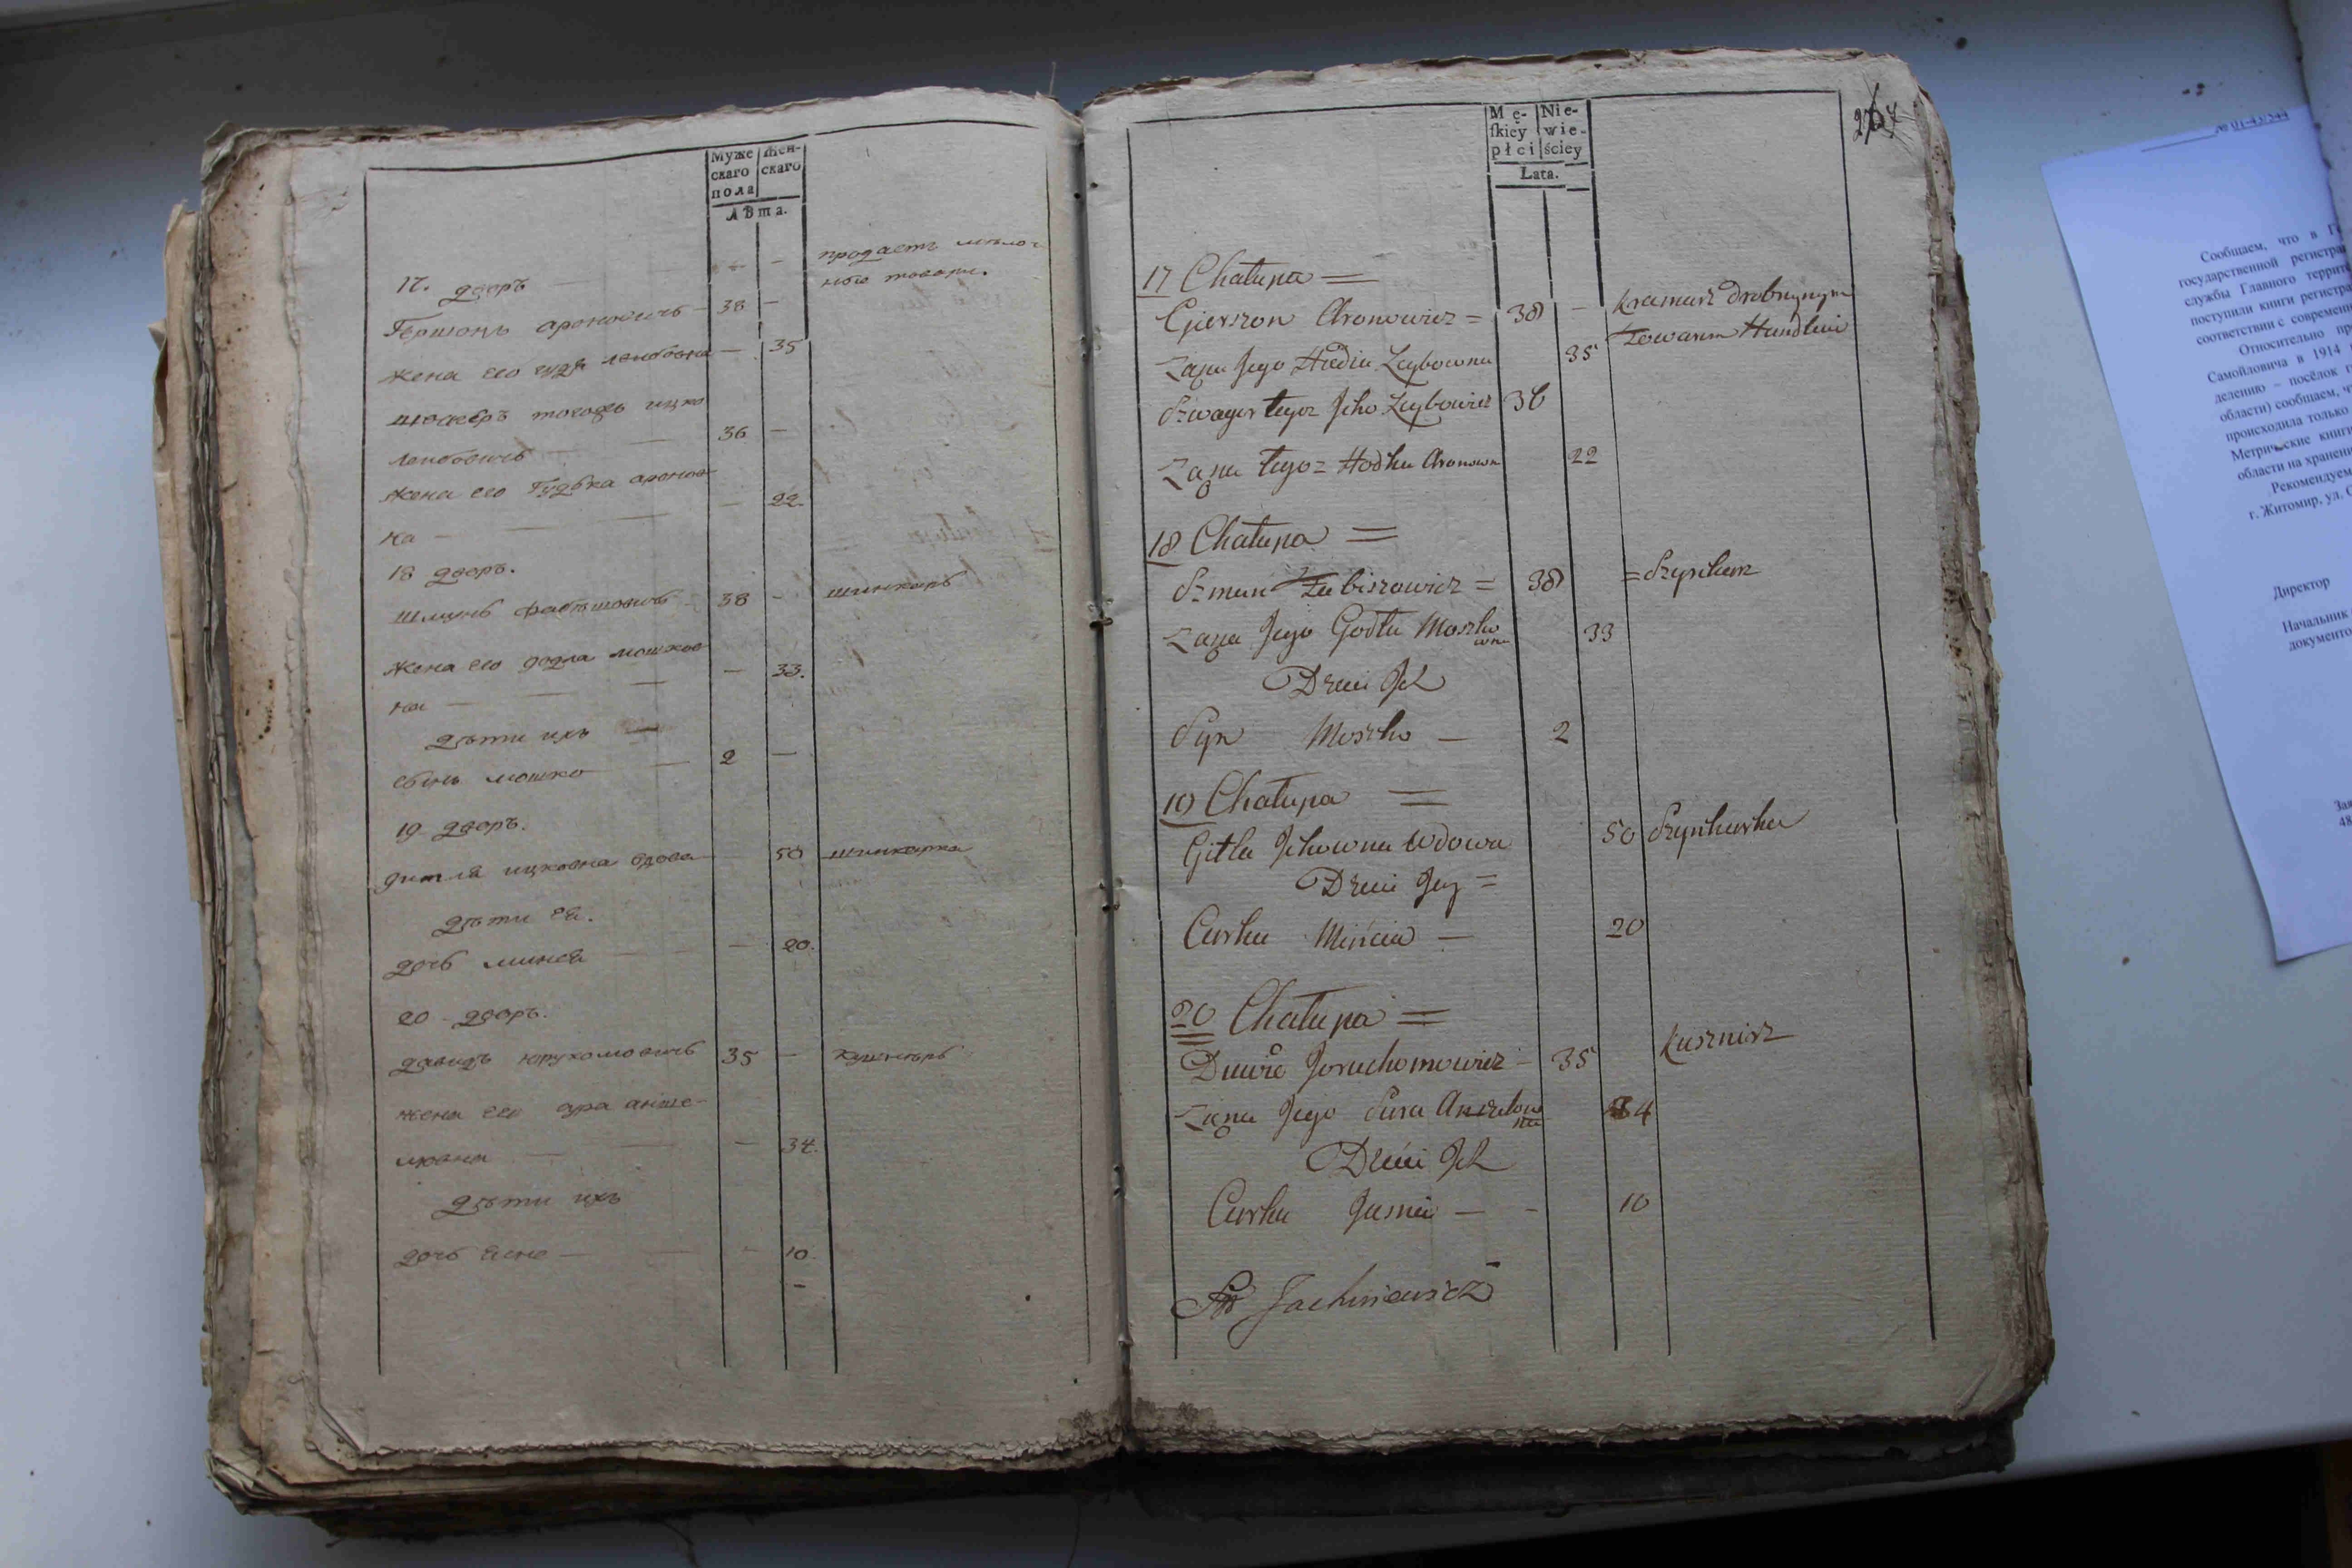 Муже
скаго
пола
Жен-
скаго
Лѣта.
17. дворъ
продаетъ мѣлоч
ные товары.
Гершонъ ароновичъ — 38 —
жена его гудя лейбовна — 35
швагеръ тогожъ ицко
лейбовичъ — 36 —
жена его Гудька аронов
на — 22.
18 дворъ.
шмунь — 38 — шинкарь
жена его годля мошков
на — 33.
дѣти ихъ
сынъ мошко — 2 —
19 дворъ.
гитля ицковна вдова — 50 шинкарка
дѣти ея.
дочь минся — 20.
20 дворъ.
давидъ юрухомовичъ 35 — кушнѣръ
жена его аншe-
лювна — 34.
дѣти ихъ
дочь ясне — 10.
Mę-
ſkiey
płci
Nie-
wie-
ściey
Lata.
17 Chałupa =
Gierszon Aronowicz = 38 — Kramarz drobnynym
Towarem Handluie
Ząna Jego Hudia Leybowna 35
Szwagier tegoz Jcko Leybowicz 36
Ząna tegoz Hodka Aronowna 22
18 Chałupa =
Szmun = 38 = Szynkarz
Ząna Jego Godla Moszko
wna 33
Dzieci Jch
Syn Moszko — 2
19 Chałupa =
Gitla Jckowna Wdowa 50 Szynkarka
Dzieci Jey =
Curka Mińcia — 20
20 Chałupa =
Dawid Joruchomowicz — 35 Kusznirz
Ząna Jego Sura Anszelow
na 34
Dzieci Jch
Curka Jasnia — - 10
Jachniewicz
№ 01-43/544
Сообщаем, что в
государственной регистра
службы Главного террит
поступили книги регистра
соответствии с современ
Относительно
Самойловича в 1914
делению – посёлок
области) сообщаем,
происходила только
Метрические книги
области на хранени
Рекомендуем
г. Житомир, ул.
Директор
Начальник
документо